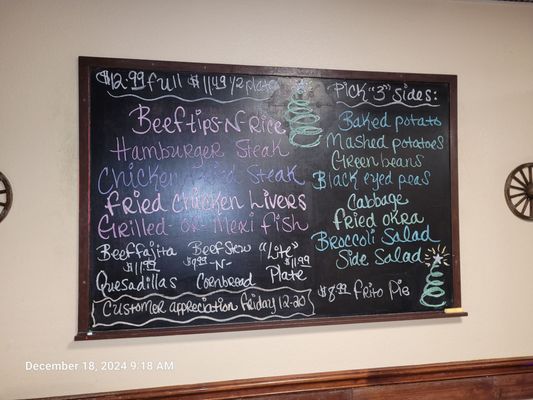 $12.99 full $11.49 1/2 plate
Beeftips-N-Rice
Hamburger Steak
Chicken Fried Steak
Fried Chicken Livers
Grilled-or-Mexi fish
Beef fajita
$11.99
Quesadillas
Beef Stew
$9.99
-N-
Cornbread
"Lite"
$11.99
Plate
Customer appreciation Friday 12-20
Pick "3" Sides:
Baked potato
Mashed potatoes
Green beans
Black eyed peas
Cabbage
Fried okra
Broccoli Salad
Side Salad
$8.99 Frito Pie
December 18, 2024 9:18 AM